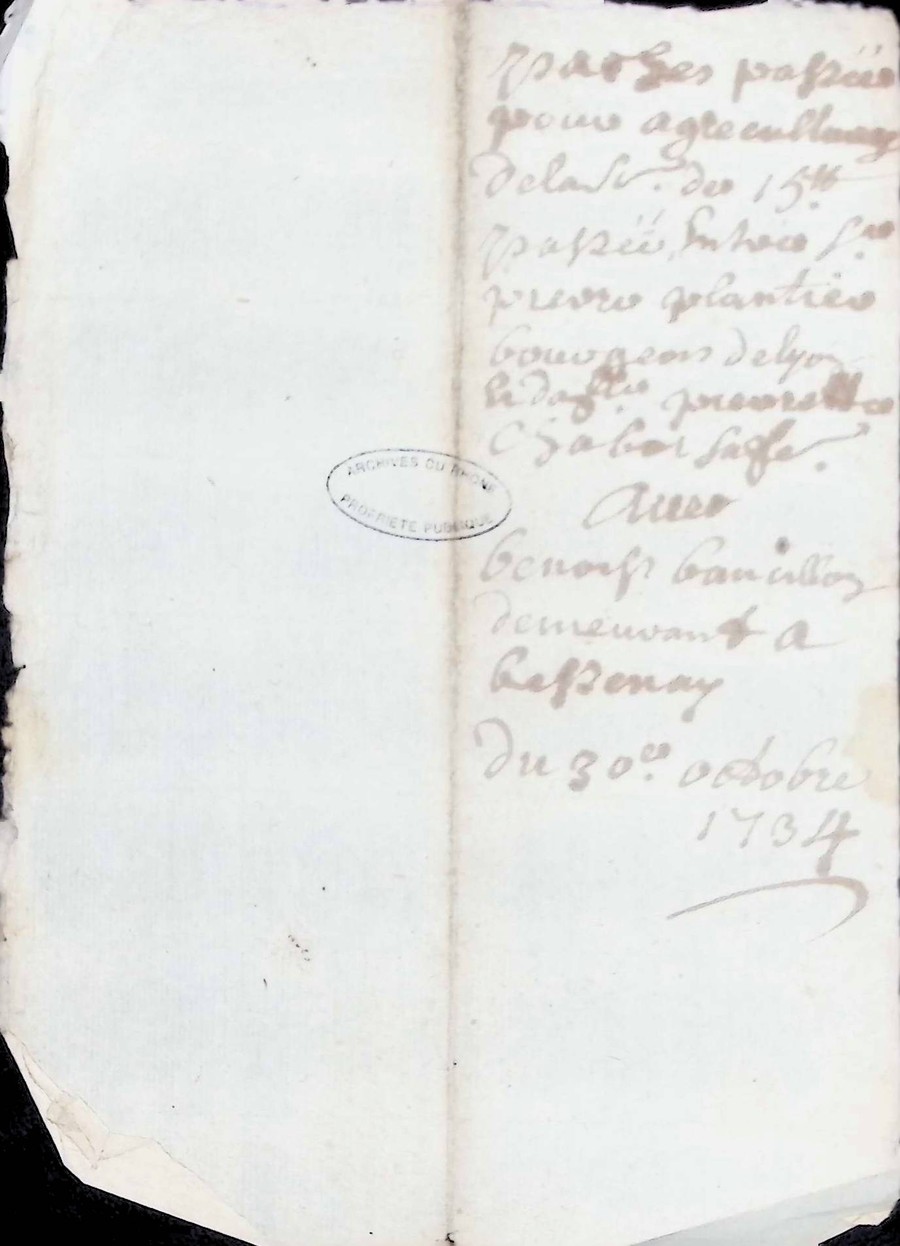 paches passée
pour agreculture
de la Sr. de 15tt
passéé Entre sre
pierre plantier
bourgeois de lyon
et daglle pierrette
Chabot sa fe.
Avec
benoist
demeurant a
bessenay
du 30e. octobre
1734
ARCHIVES DU RHONE
PROPRIETE PUBLIQUE